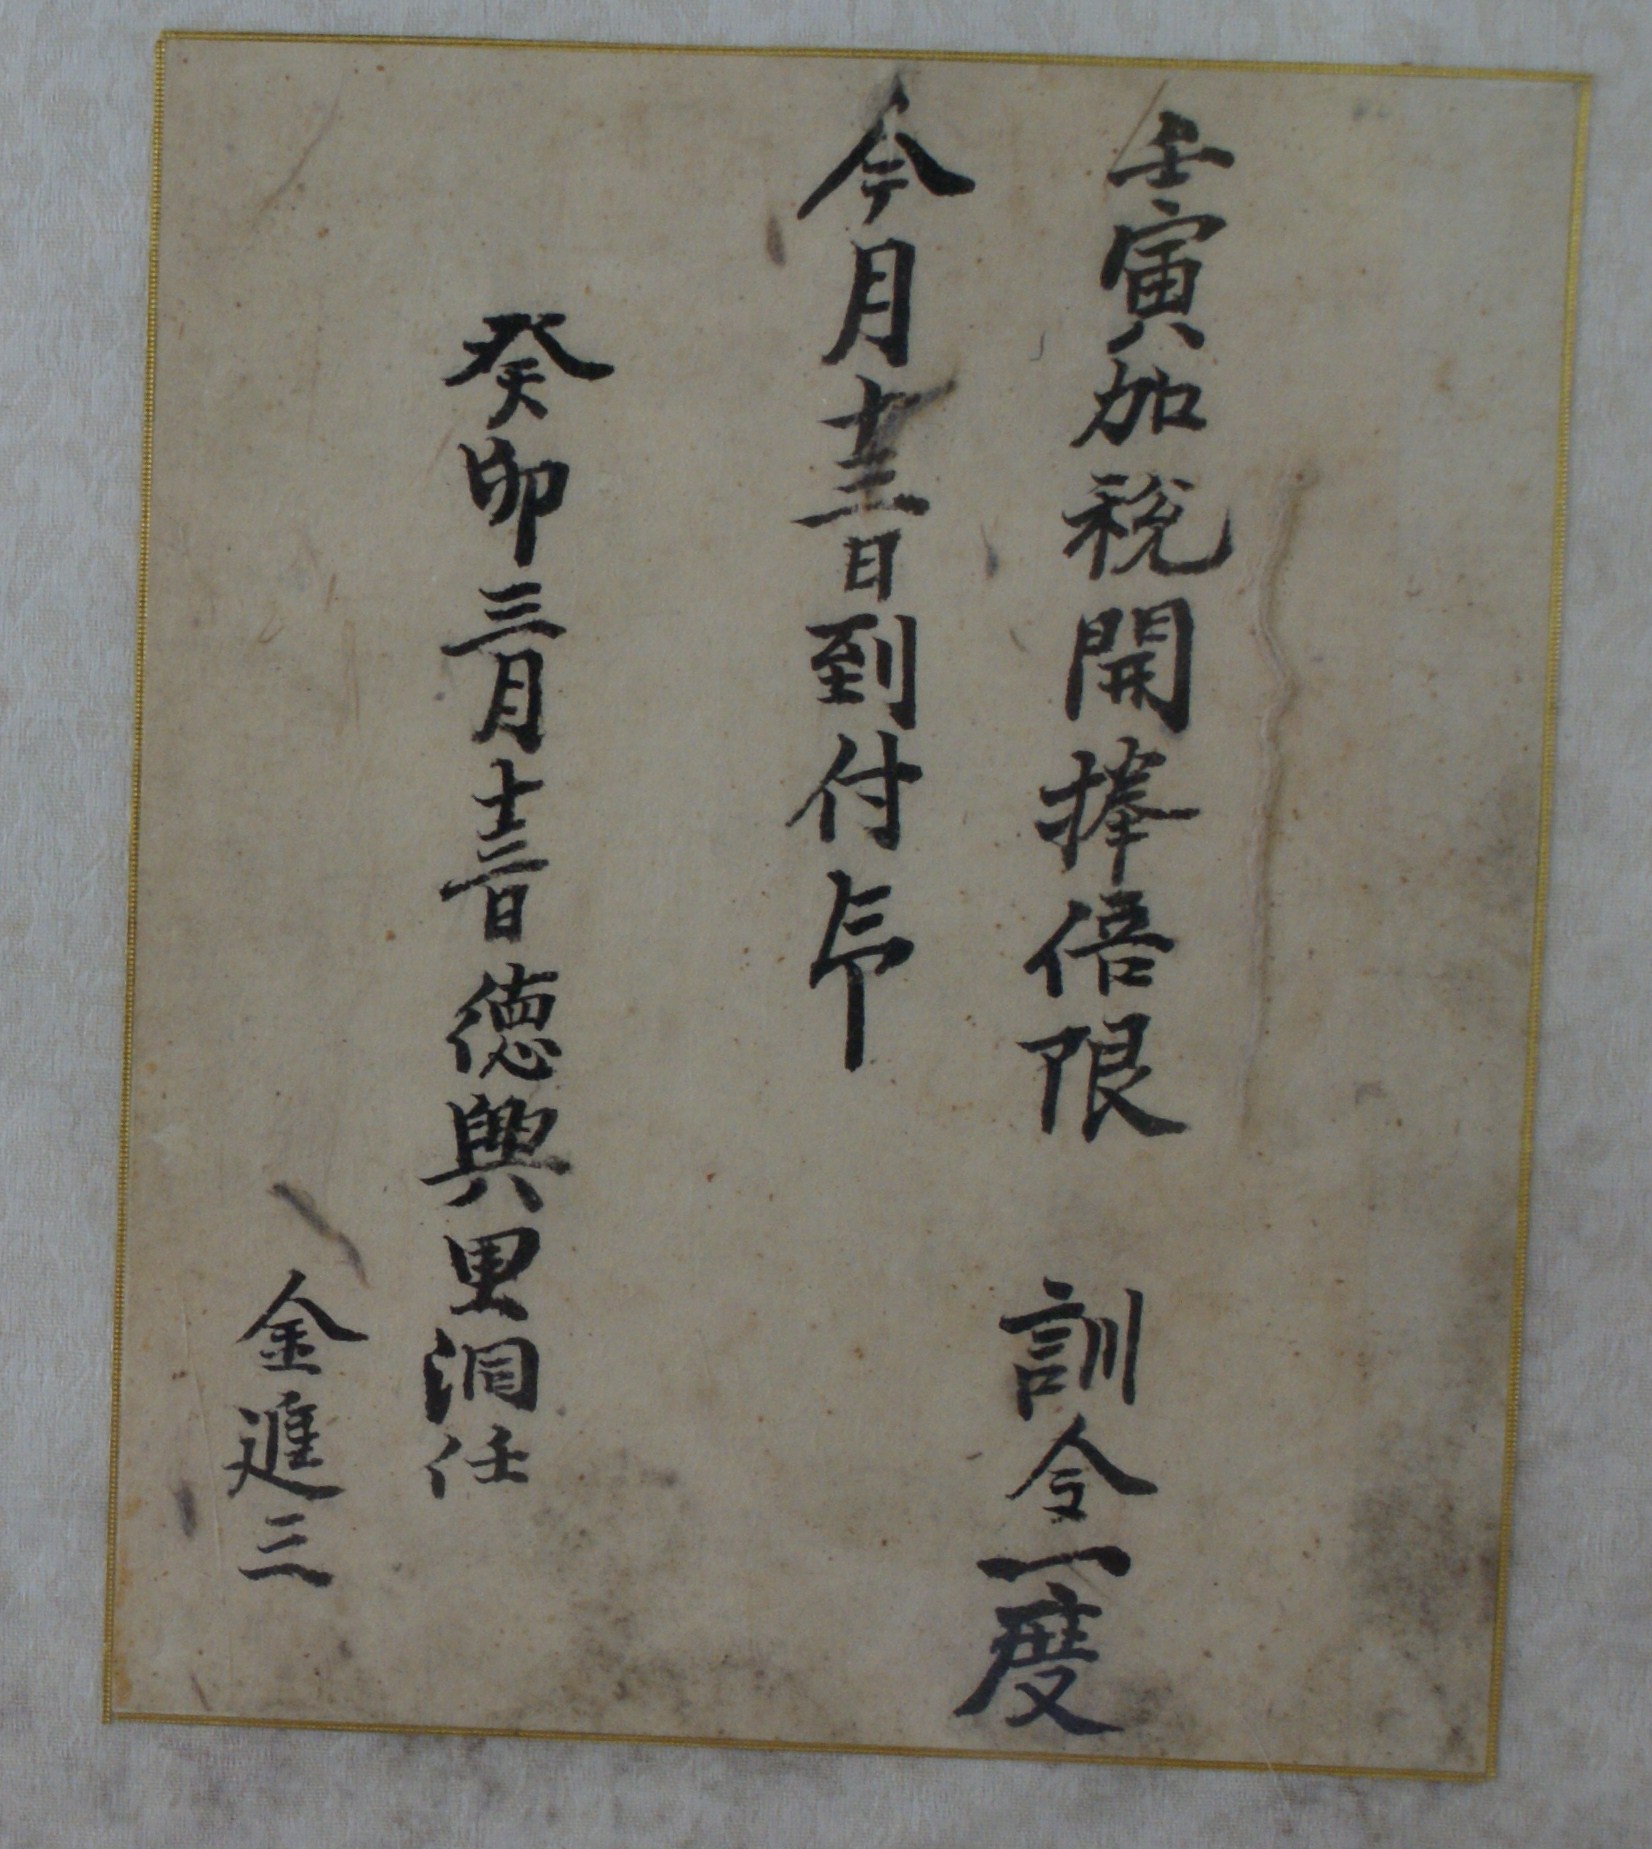 壬寅加稅開捧倍限 訓令一度
今月十三日到付印
癸卯三月十三日德興里洞任
金進三